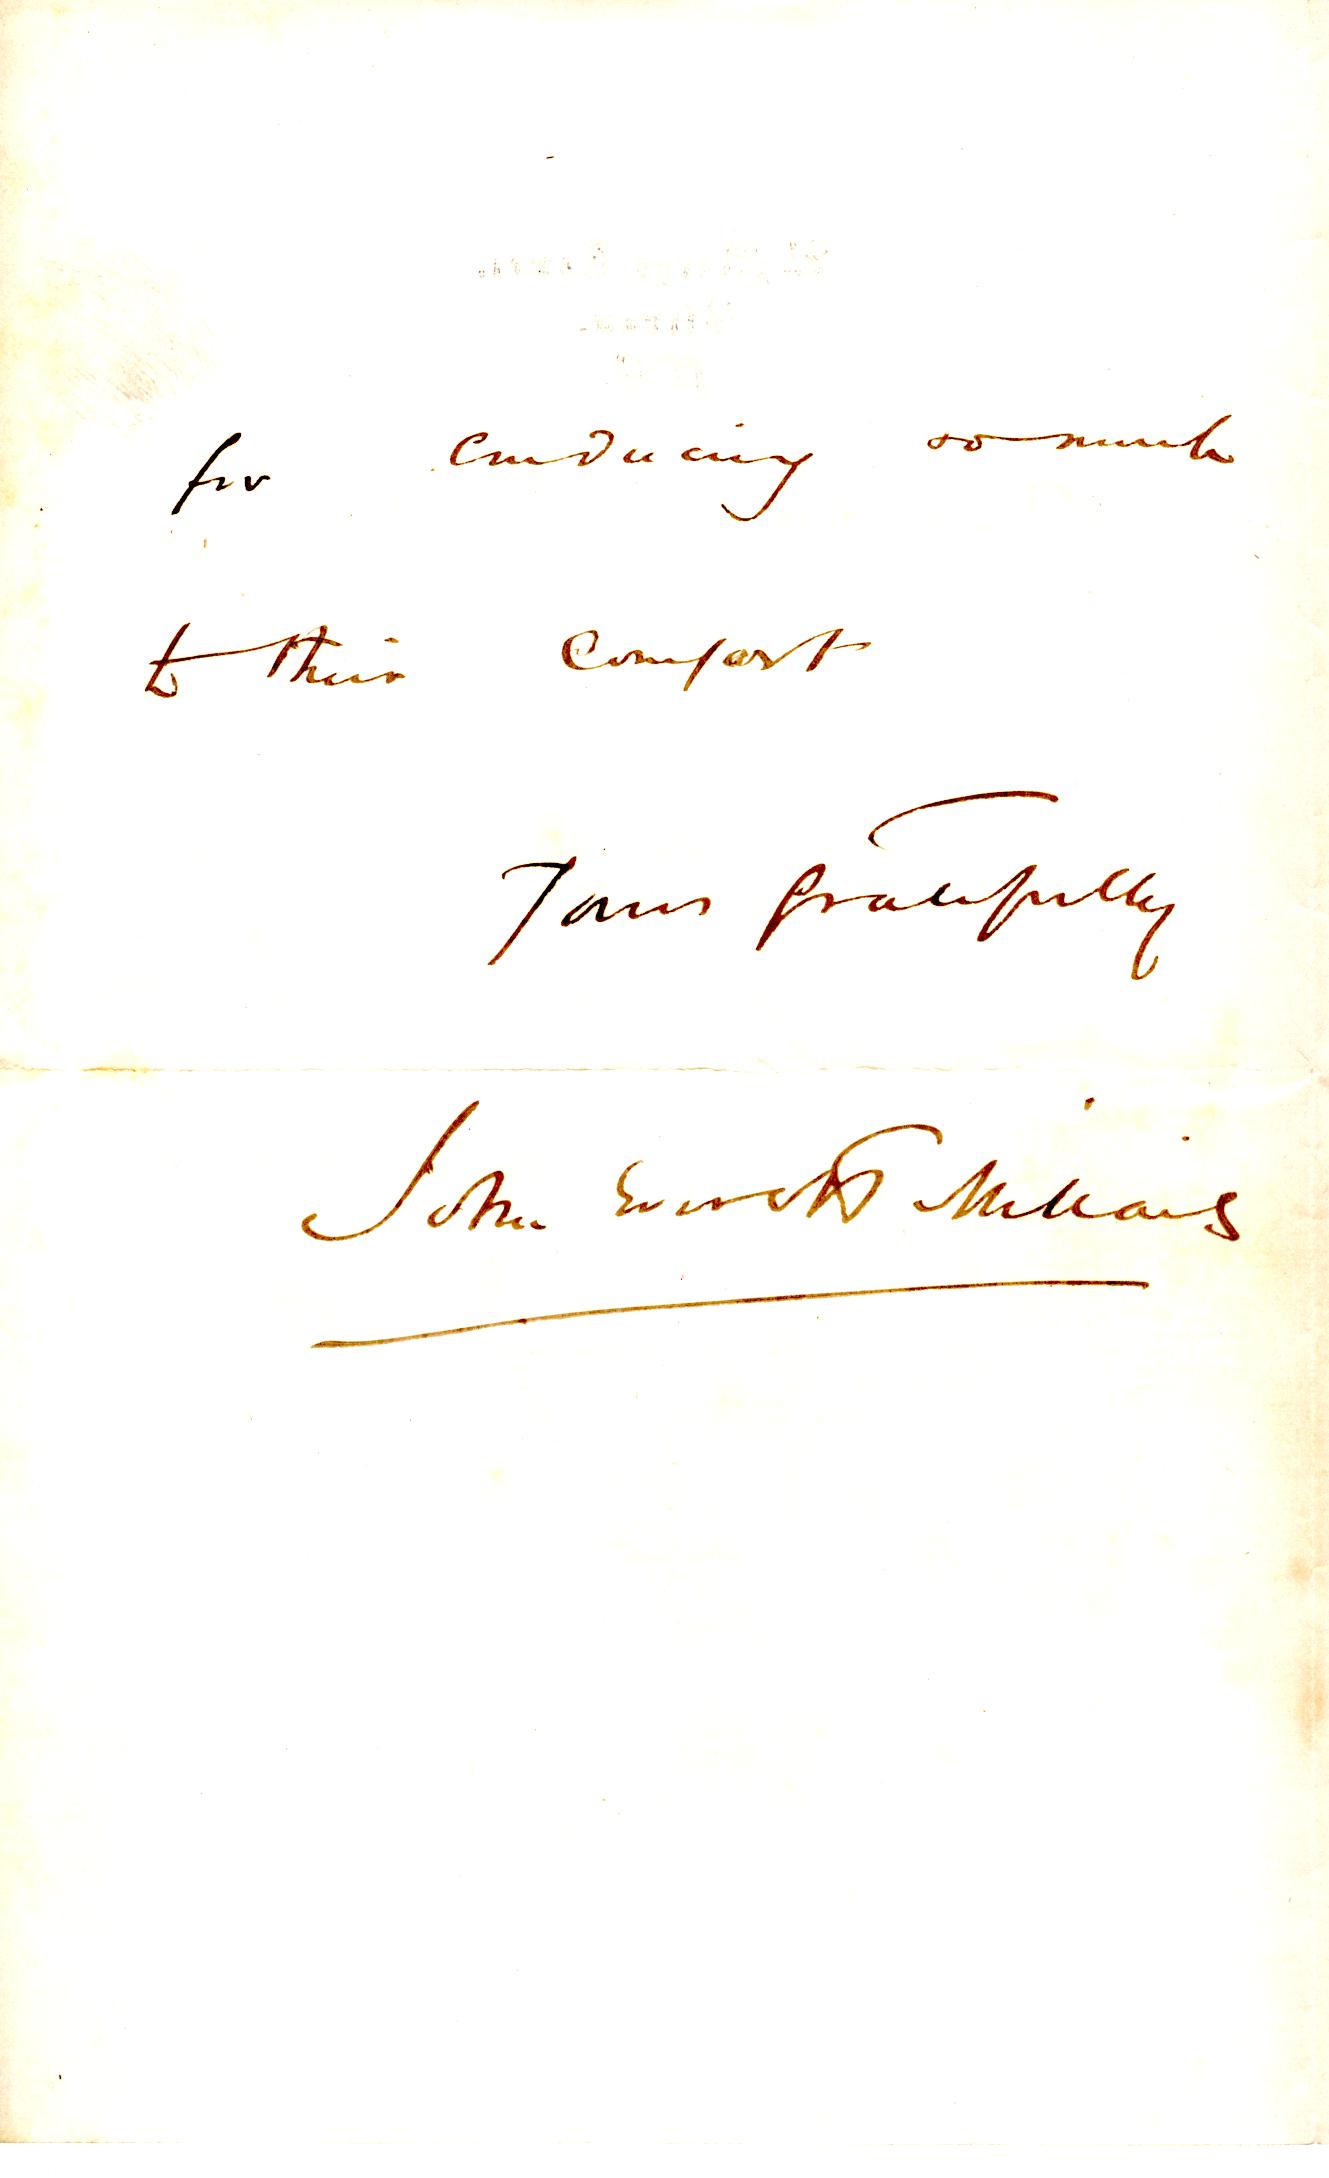 for conducing so much
to their comfort
Yours gratefully
John Everett Millais